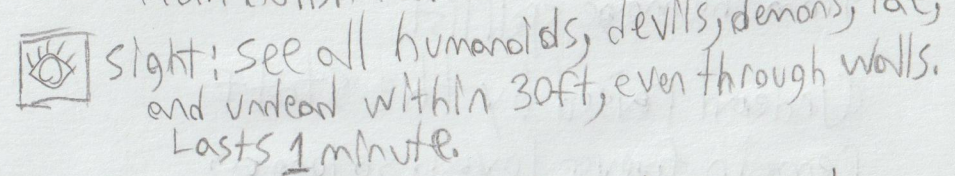 sight: see all humanoids, devils, demons,
and undead within 30ft, even through walls.
Lasts 1 minute.